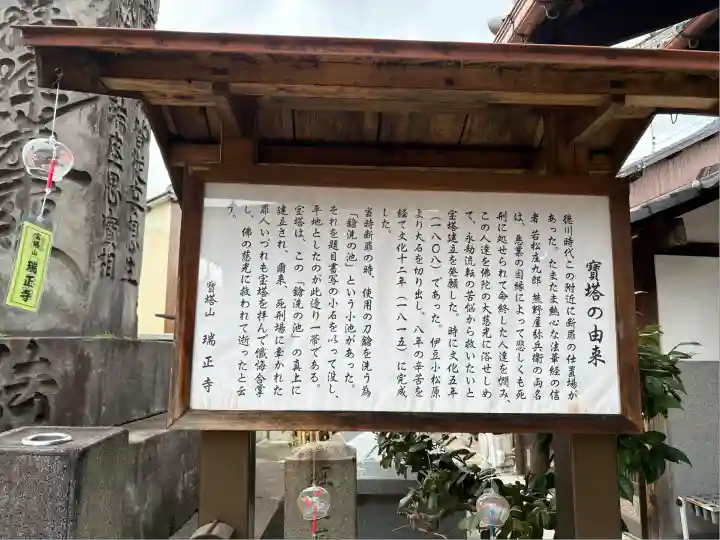 寶塔の由来
徳川時代この附近に断罪の仕置場が
あった。たまたま熱心な法華経の信
者 若松庄九郎 熊野屋弥兵衛の両名
は、悪業の因縁によって悲しくも死
刑に処せられて命終した人達を憫み、
この人達を佛陀の大慈光に浴せしめ
て、永劫流転の苦悩から救いたいと
宝塔建立を発願した。時に文化五年
(一八〇八)であった。伊豆小松原
より大石を切り出し、八年の辛苦を
経て文化十二年(一八一五)に完成
した。
当時断罪の時、使用の刀鎗を洗う為
「鎗洗の池」という小池があった。
それを題目書写の小石を以って没し、
平地としたのが此邊り一帯である。
宝塔は、この「鎗洗の池」の真上に
建立され、爾来、死刑場に牽かれた
罪人いづれも宝塔を拝んで懺悔合掌
し、佛の慈光に救われて逝ったと云
う。
寶塔山 瑞正寺
宝塔山 瑞正寺